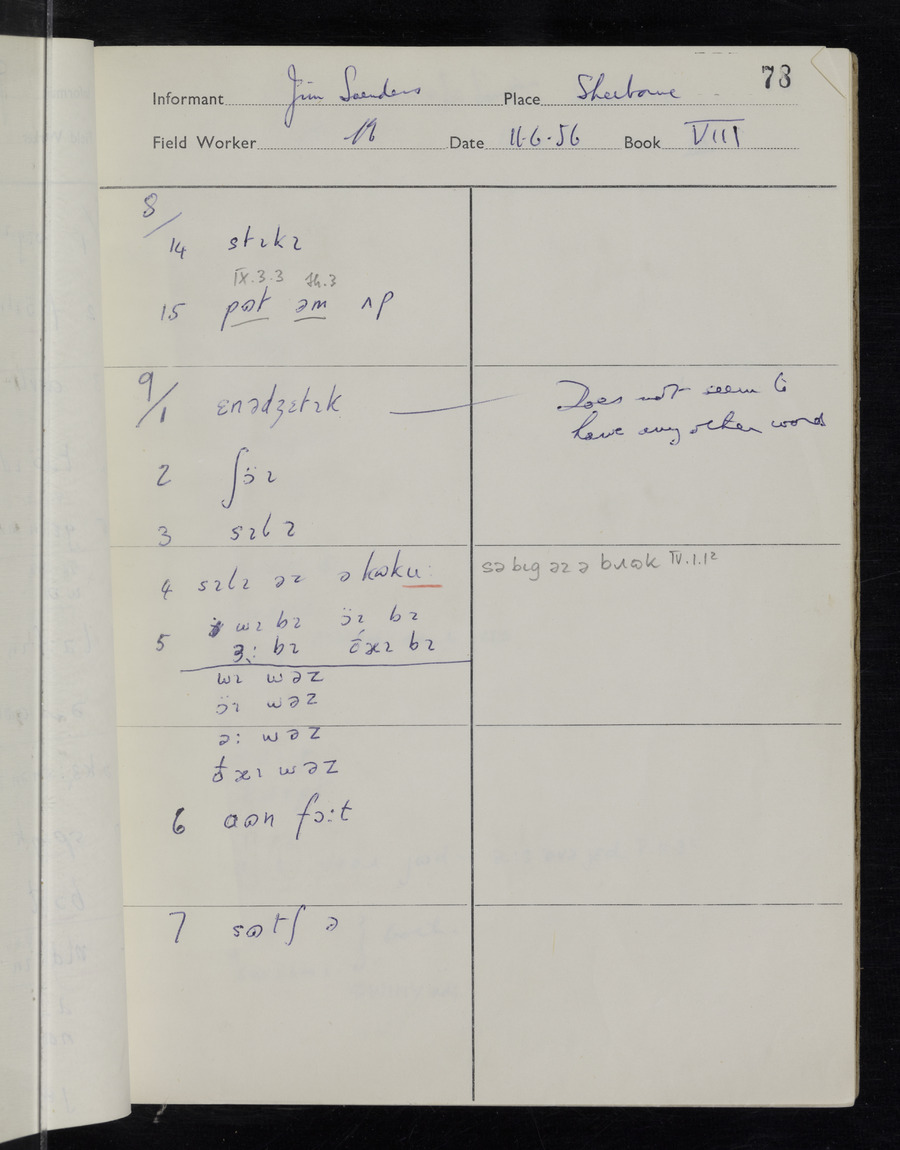 78
Informant Jim Saunders Place Sherborne
Field Worker Date 11.6.56 Book VIII
8/
14 stɪkɪ
IX.3.3 Th.3
15 pɷt əm ʌp
9/1 ɛnədʒɛtɪk Does not seem to
have any other words
2 ʃöɪ
3 sɪlɪ
4 sɪlɪ əz ə kɷku: sə bɪg əz ə bɹɷk IV.1.12
5 wɪ bɪ öɪ bɪ
ɜ: bɪ
wɪ wəz
öɪ wəz
ə: wəz
wəz
6 aɷn fɔ:t
7 sɷtʃ ə